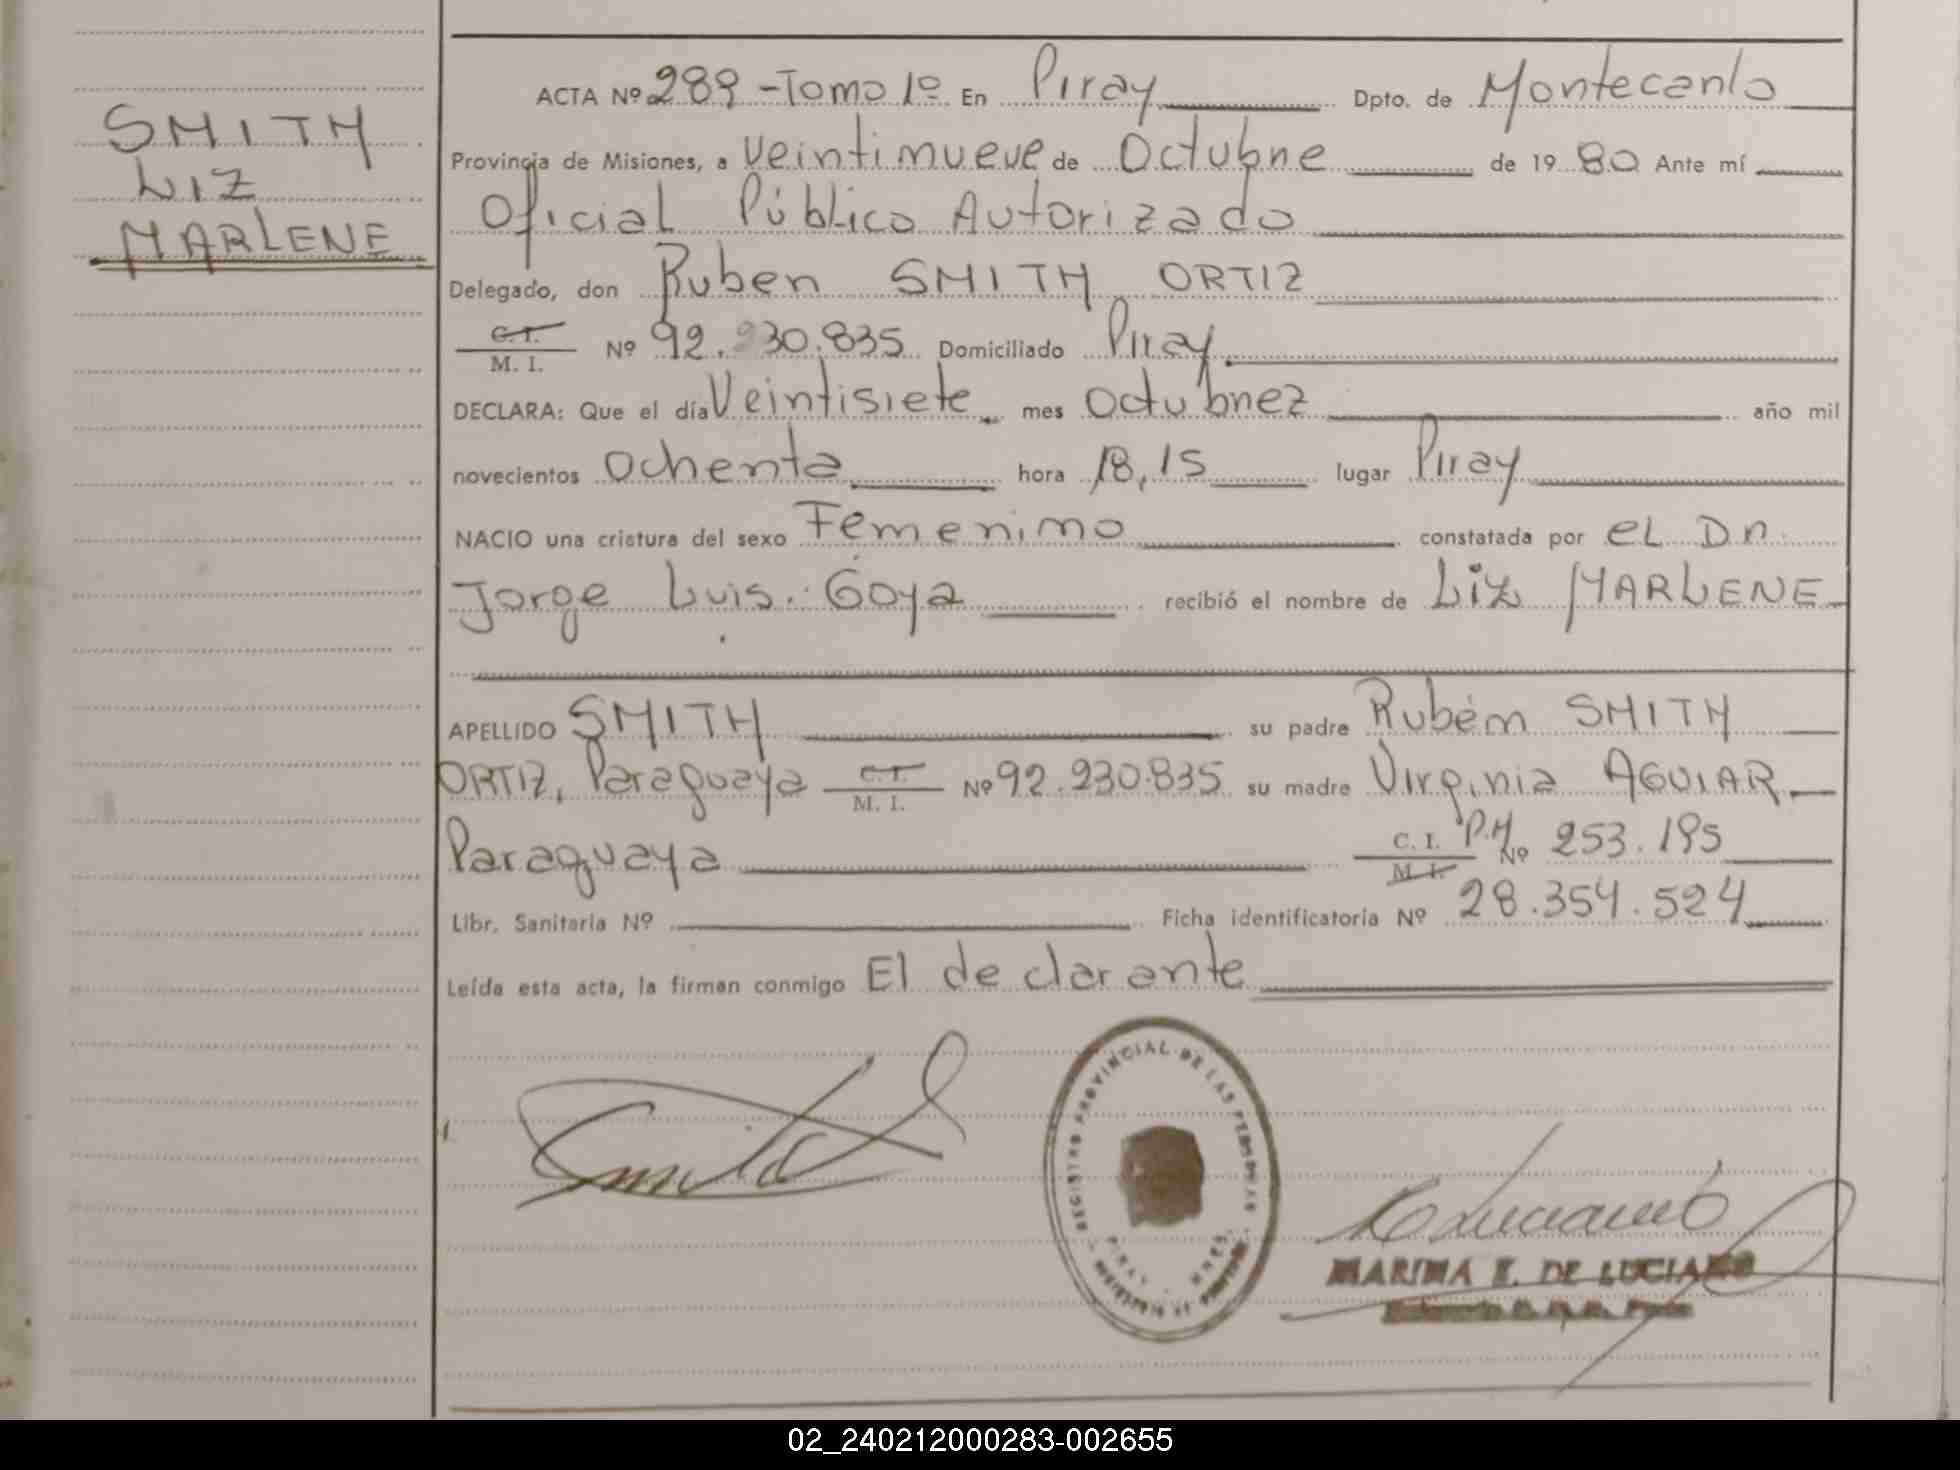 SMITH
LIZ
MARLENE
ACTA Nº 289 - Tomo 1º En Piray Dpto. de Montecarlo
Provincia de Misiones, a Veintinueve de Octubre de 1980 Ante mí
Oficial Público Autorizado
Delegado, don Ruben SMITH ORTIZ
C. I.
M. I. Nº 92.930.835 Domiciliado Piray
DECLARA: Que el día Veintisiete mes Octubrez año mil
novecientos Ochenta hora 18,15 lugar Piray
NACIO una criatura del sexo Femenino constatada por el Dr.
Jorge Luis. Goya recibió el nombre de Liz MARLENE
APELLIDO SMITH su padre Rubén SMITH
ORTIZ, Paraguaya C. I. M. I. Nº 92.930.835 su madre Virginia AGUIAR
Paraguaya C. I. M. I. Nº 253.195
Libr. Sanitaria Nº Ficha identificatoria Nº 28.354.524
Leída esta acta, la firman conmigo El declarante
REGISTRO PROVINCIAL DE LAS PERSONAS
PIRAY - MNES.
MARINA E. DE LUCIANO
02_240212000283-002655